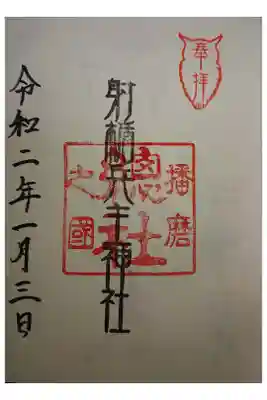 奉拝
射楯兵主神社
播磨
之國
令和二年一月三日